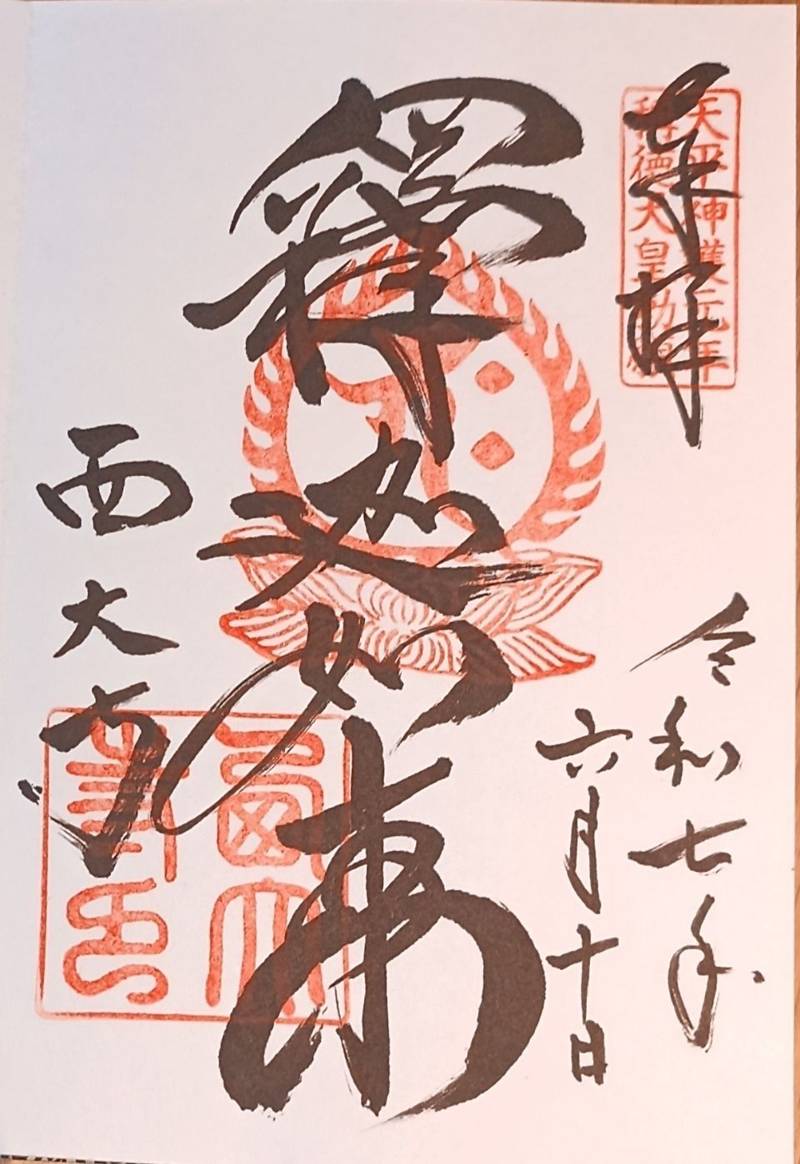 奉拝
天平神護元年
称徳天皇勅願
令和七年
六月十日
釋迦如来
西大寺
西大寺印